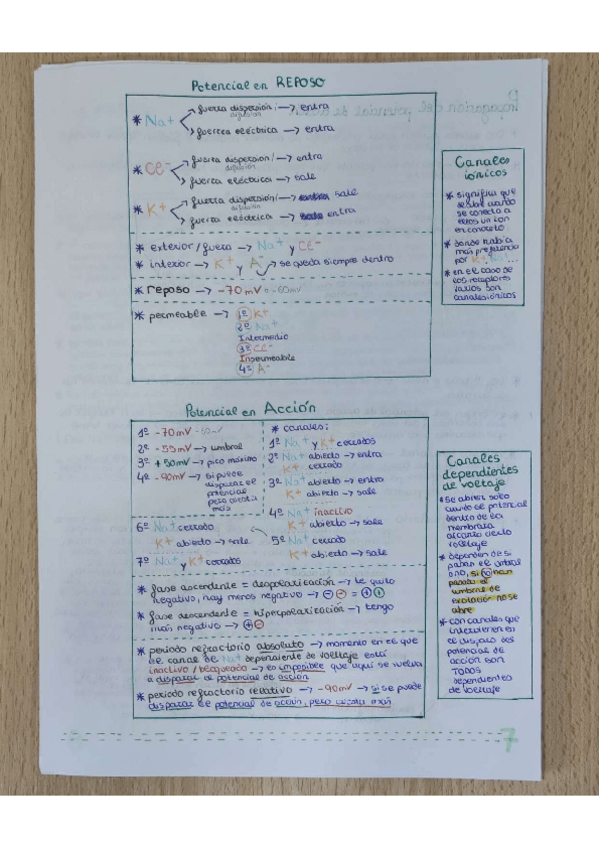 Potencial en REPOSO
* Na+
fuerza dispersión/ → entra
difusión
fuerza eléctrica → entra
* Cl-
fuerza dispersión/ → entra
difusión
fuerza eléctrica → sale
* K+
fuerza dispersión/ → sale
difusión
fuerza eléctrica → entra
* exterior/fuera → Na+ y Cl-
* interior → K+ y A- → se queda siempre dentro
* reposo → -70mV
* permeable → 1º K+
2º Na+
Intermedio
3º Cl-
Impermeable
4º A-
Canales
iónicos
* significa que
se abre cuando
se conecta a
ellos un ion
en concreto
* donde había
más preferencia
por K+, Na+...
* en el caso de
los receptores
varios son
canales iónicos
Potencial en Acción
1º -70mV
2º -55mV → umbral
3º +50mV → pico máximo
4º -90mV → si puede
disparar el
potencial
pero cuesta
más
* canales:
1º Na+ y K+ cerrados
2º Na+ abierto → entra
K+ cerrado
3º Na+ abierto → entra
K+ abierto → sale
4º Na+ inactivo
K+ abierto → sale
5º Na+ cerrado
K+ abierto → sale
6º Na+ cerrado
K+ abierto → sale
7º Na+ y K+ cerrados
* fase ascendente = despolarización → le quito
negativo, hay menos negativo → - - = + +
* fase descendente = hiperpolarización → tengo
más negativo → + -
* periodo refractario absoluto → momento en el que
el canal de Na+ dependiente de voltaje está
inactivo/bloqueado → es imposible que aquí se vuelva
a disparar el potencial de acción
* periodo refractario relativo → -90mV → si se puede
disparar el potencial de acción, pero cuesta más
Canales
dependientes
de voltaje
* se abren solo
cuando el potencial
dentro de la
membrana
alcanza cierto
voltaje
* dependen de si
pasan el umbral
o no, si no han
pasado el
umbral de
excitación no se
abre
* con canales que
intervienen en
el disparo del
potencial de
acción son
TODOS
dependientes
de voltaje
7